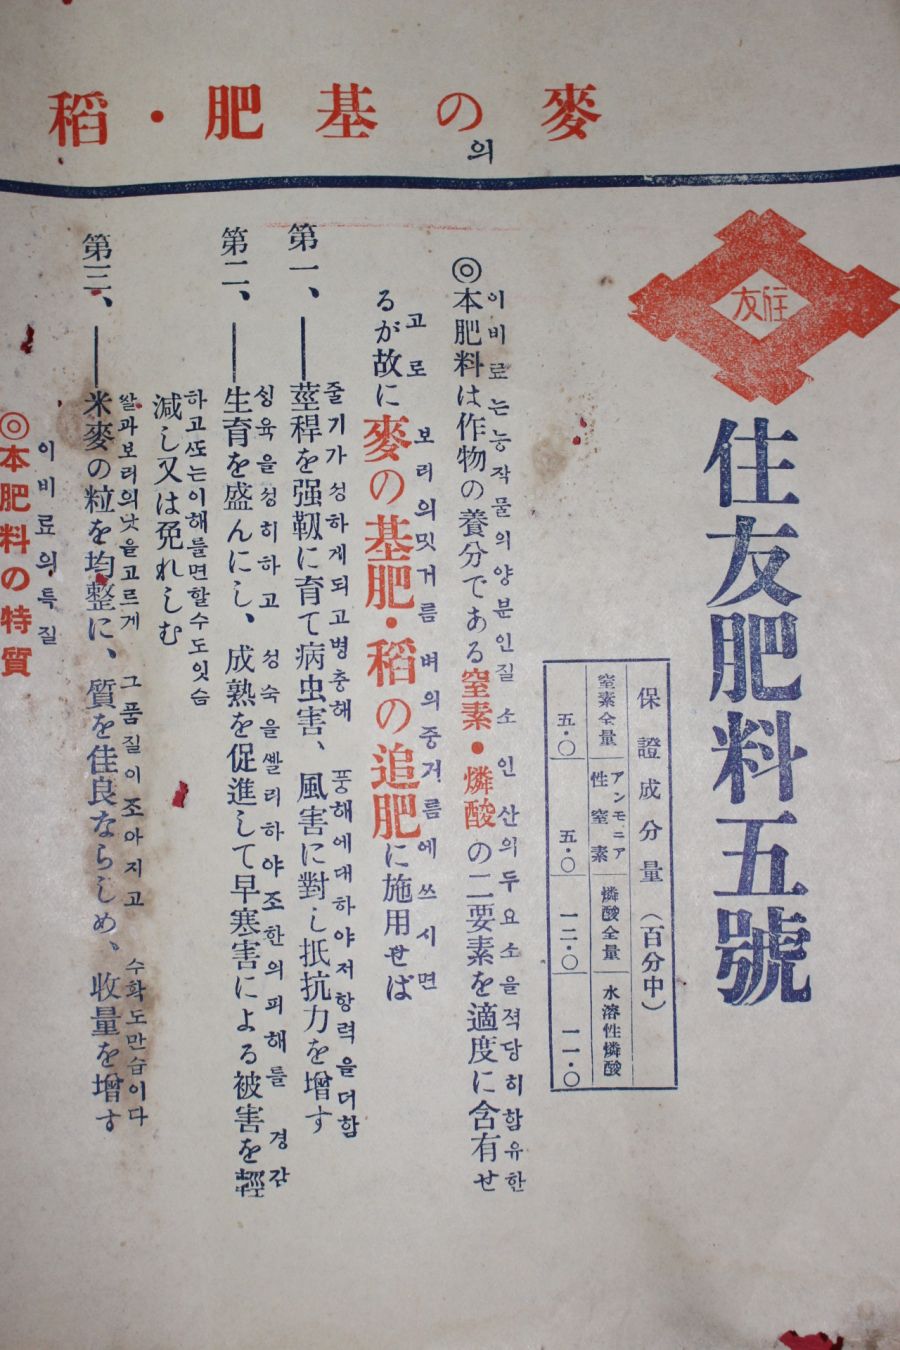 麥の基肥・稻
의
住友
住友肥料五號
保證成分量(百分中)
窒素全量 アンモニア性窒素 燐酸全量 水溶性燐酸
五・〇 五・〇 一二・〇 一一・〇
이비료는농작물의양분인질소인산의두요소을적당히함유한
◎本肥料は作物の養分である窒素・燐酸の二要素を適度に含有せ
고로 보리의밋거름 벼의중거름에쓰시면
るが故に麥の基肥・稻の追肥に施用せば
줄기가성하게되고병충해 풍해에대하야저항력을더함
第一、―莖稈を强靱に育て病虫害、風害に對し抵抗力を增す
싱육을성히하고 성숙을쌜리하야조한의피해를경감
第二、―生育を盛んにし、成熟を促進して早寒害による被害を輕
하고또는이해를면할수도잇슴
減し又は免れしむ
쌀과보리의낫을고르게 그품질이조아지고 수확도만슴이다
第三、―米麥の粒を均整に、質を佳良ならしめ、收量を增す
이비료의특질
◎本肥料の特質